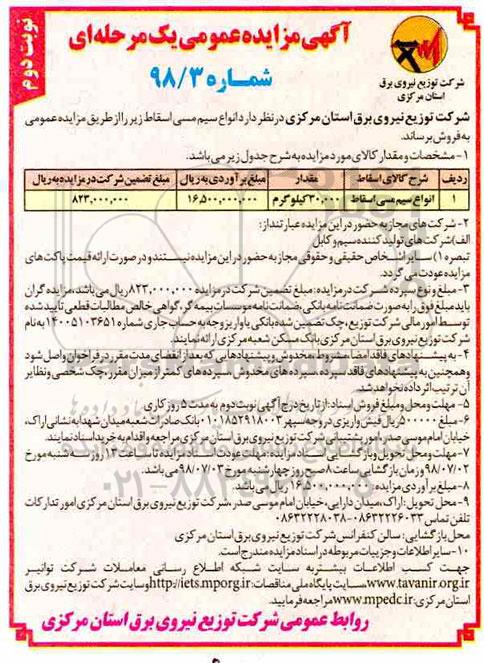 نوبت دوم
آگهی مزایده عمومی یک مرحله‌ای
شماره ۹۸/۳
شرکت توزیع نیروی برق
استان مرکزی
شرکت توزیع نیروی برق استان مرکزی در نظر دارد انواع سیم مسی اسقاط زیر را از طریق مزایده عمومی
به فروش برساند.
۱- مشخصات و مقدار کالای مورد مزایده به شرح جدول زیر می‌باشد.
ردیف شرح کالای اسقاط مقدار مبلغ برآوردی به ریال مبلغ تضمین شرکت در مزایده به ریال
۱ انواع سیم مسی اسقاط ۳۰,۰۰۰ کیلوگرم ۱۶,۵۰۰,۰۰۰,۰۰۰ ۸۲۳,۰۰۰,۰۰۰
۲- شرکت های مجاز به حضور در این مزایده عبارتند از:
الف) شرکت های تولید کننده سیم و کابل
تبصره ۱) سایر اشخاص حقیقی و حقوقی مجاز به حضور در این مزایده نیستند و در صورت ارائه قیمت پاکت های
مزایده عودت می گردد.
۳- مبلغ و نوع سپرده شرکت در مزایده: مبلغ تضمین شرکت در مزایده ۸۲۳,۰۰۰,۰۰۰ ریال می‌باشد، مزایده گران
باید مبلغ فوق را به صورت ضمانت نامه بانکی، ضمانت نامه موسسات بیمه گر، گواهی خالص مطالبات قطعی تایید شده
توسط امور مالی شرکت توزیع، چک تضمین شده بانکی یا واریز وجه به حساب جاری شماره ۱۴۰۰۵۱۰۳۶۵۱ به نام
شرکت توزیع نیروی برق استان مرکزی بانک مسکن شعبه مرکزی ارائه نمایند.
۴- به پیشنهادهای فاقد امضا، مشروط، مخدوش و پیشنهادهایی که بعد از انقضای مدت مقرر در فراخوان واصل شود
و همچنین به پیشنهادهای فاقد سپرده، سپرده های مخدوش، سپرده های کمتر از میزان مقرر، چک شخصی و نظایر
آن ترتیب اثر داده نخواهد شد.
۵- مهلت و محل و مبلغ فروش اسناد: از تاریخ درج آگهی نوبت دوم به مدت ۵ روز کاری
۶- مبلغ ۵۰۰۰۰۰ ریال فیش واریزی در وجه سپهر ۰۱۰۱۸۵۲۹۱۸۰۰۳ بانک صادرات شعبه میدان شهدا به نشانی اراک،
خیابان امام موسی صدر، امور پشتیبانی شرکت توزیع نیروی برق استان مرکزی مراجعه و اقدام به خرید اسناد نمایند.
۷- مهلت و محل تحویل و بازگشایی اسناد مزایده: مهلت عودت اسناد مزایده تا ساعت ۱۴ روز سه شنبه مورخ
۹۸/۰۷/۰۲ و زمان بازگشایی ساعت ۸ صبح روز چهارشنبه مورخ ۹۸/۰۷/۰۳ می‌باشد.
۸- مبلغ برآوردی مزایده: ۱۶,۵۰۰,۰۰۰,۰۰۰ ریال می باشد.
۹- محل تحویل: اراک، میدان دارایی، خیابان امام موسی صدر، شرکت توزیع نیروی برق استان مرکزی امور تدارکات
تلفن تماس ۰۸۶۳۲۲۲۶۰۳۳-۰۸۶۳۲۲۲۸۰۳۸
محل بازگشایی: سالن کنفرانس شرکت توزیع نیروی برق استان مرکزی
۱۰- سایر اطلاعات و جزییات مربوطه در اسناد مزایده مندرج است.
جهت کسب اطلاعات بیشتر به سایت شبکه اطلاع رسانی معاملات شرکت توانیر
www.tavanir.org.ir سایت پایگاه ملی مناقصات: http://iets.mporg.ir و سایت شرکت توزیع نیروی برق
استان مرکزی: www.mpedc.ir مراجعه فرمایید.
روابط عمومی شرکت توزیع نیروی برق استان مرکزی